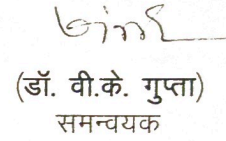 (डॉ. वी.के. गुप्ता)
समन्वयक